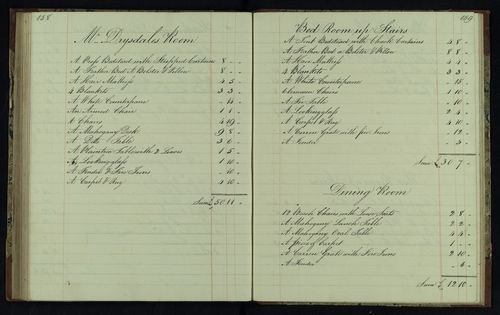 158
Mr Drysdales Room
A Post Bedstead with Stripped Curtains 8 " -
A Feather Bed A Bolster & Pillow 8 - -
A Hair Mattress 4 5 -
4 Blankets 3 3 -
A White Counterpane - 14 -
An Armed Chair 1 1 -
6 Chairs 4 10 -
A Mahogany Desk 9 8 -
A Ditto Table 3 0 -
A Plaintree Table with 2 Leaves 1 5 -
A Looking glass 1 10 -
A Fender & Fire Irons - 10 -
A Carpet & Rug 4 10 -
Sum £ 50 11 -
159
Bed Room up Stairs
A Tent Bedstead with Check Curtains
A Feather Bed a Bolster & Pillow 8 8 -
A Hair Mattress 4 4 -
4 Blankets 3 3 -
A White Counterpane - 15 -
Chairs 1 10 -
A Table - 10 -
A Looking glass 2 4 -
A Carpet & Rug 4 10 -
A Carron Grate with fire Irons - 12 -
A Fender - 5 -
Sum £ 30 7 -
Dining Room
12 Chairs with Seats 2 8 -
A Mahogany Lunch Table 2 2 -
A Mahogany Oval Table 4 4 -
A Piece of Carpet 1 - -
A Carron Grate with Fire Irons 2 10 -
A Fender - 6 -
Sum £ 12 10 -